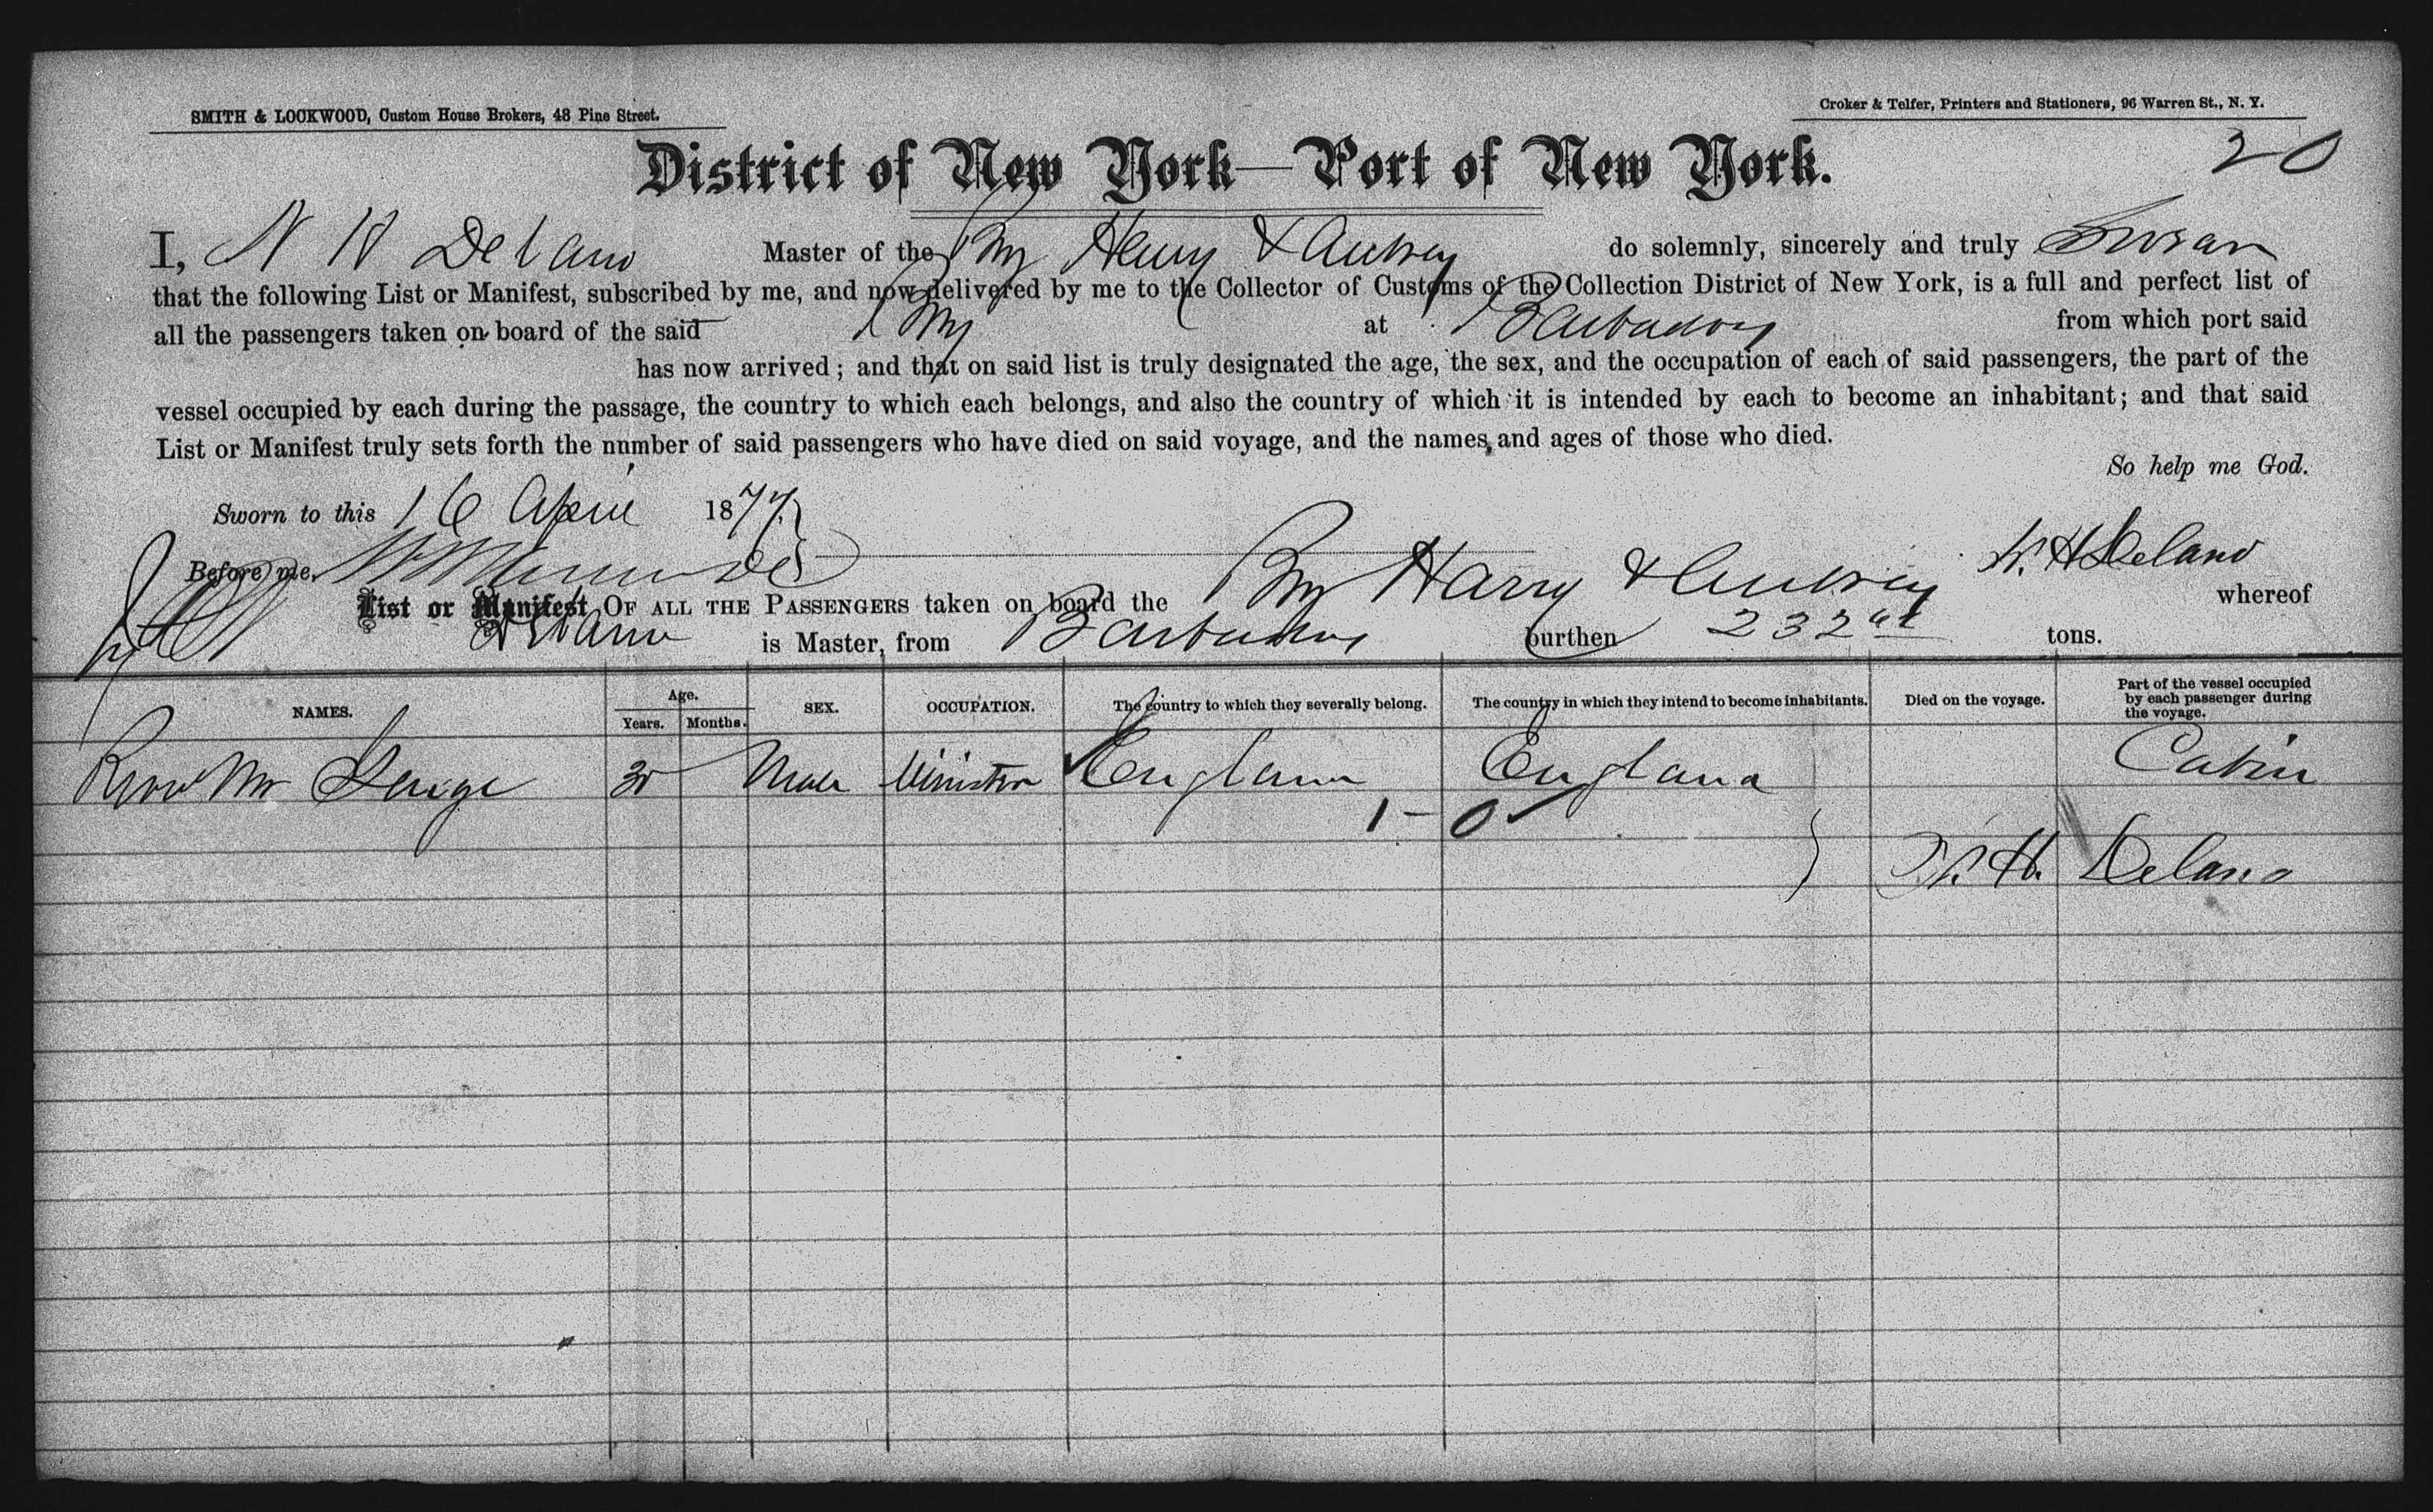 SMITH & LOCKWOOD, Custom House Brokers, 48 Pine Street.
Croker & Telfer, Printers and Stationers, 96 Warren St., N. Y.
20
District of New York—Port of New York.
I, W H Delano Master of the Brig Harry & Aubrey do solemnly, sincerely and truly Swear
that the following List or Manifest, subscribed by me, and now delivered by me to the Collector of Customs of the Collection District of New York, is a full and perfect list of
all the passengers taken on board of the said Brig at Barbados from which port said
has now arrived; and that on said list is truly designated the age, the sex, and the occupation of each of said passengers, the part of the
vessel occupied by each during the passage, the country to which each belongs, and also the country of which it is intended by each to become an inhabitant; and that said
List or Manifest truly sets forth the number of said passengers who have died on said voyage, and the names, and ages of those who died.
So help me God.
Sworn to this 16 April 1877
Before me, W. H Delano
List or Manifest OF ALL THE PASSENGERS taken on board the Brig Harry & Aubrey whereof
Delano is Master, from Barbados burthen 232 tons.
NAMES. Age. Years. Months. SEX. OCCUPATION. The country to which they severally belong. The country in which they intend to become inhabitants. Died on the voyage. Part of the vessel occupied by each passenger during the voyage.
Mr George Male Minister England England Cabin
1 - 0
W. H. Delano